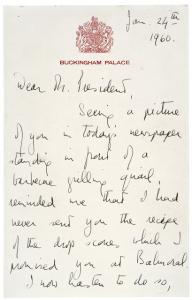 Jan. 24th
1960.
BUCKINGHAM PALACE
Dear Mr. President,
Seeing a picture
of you in today's newspaper
standing in front of a
barbecue grilling quail,
reminded me that I had
never sent you the recipe
of the drop scones which I
promised you at Balmoral.
I now hasten to do so,